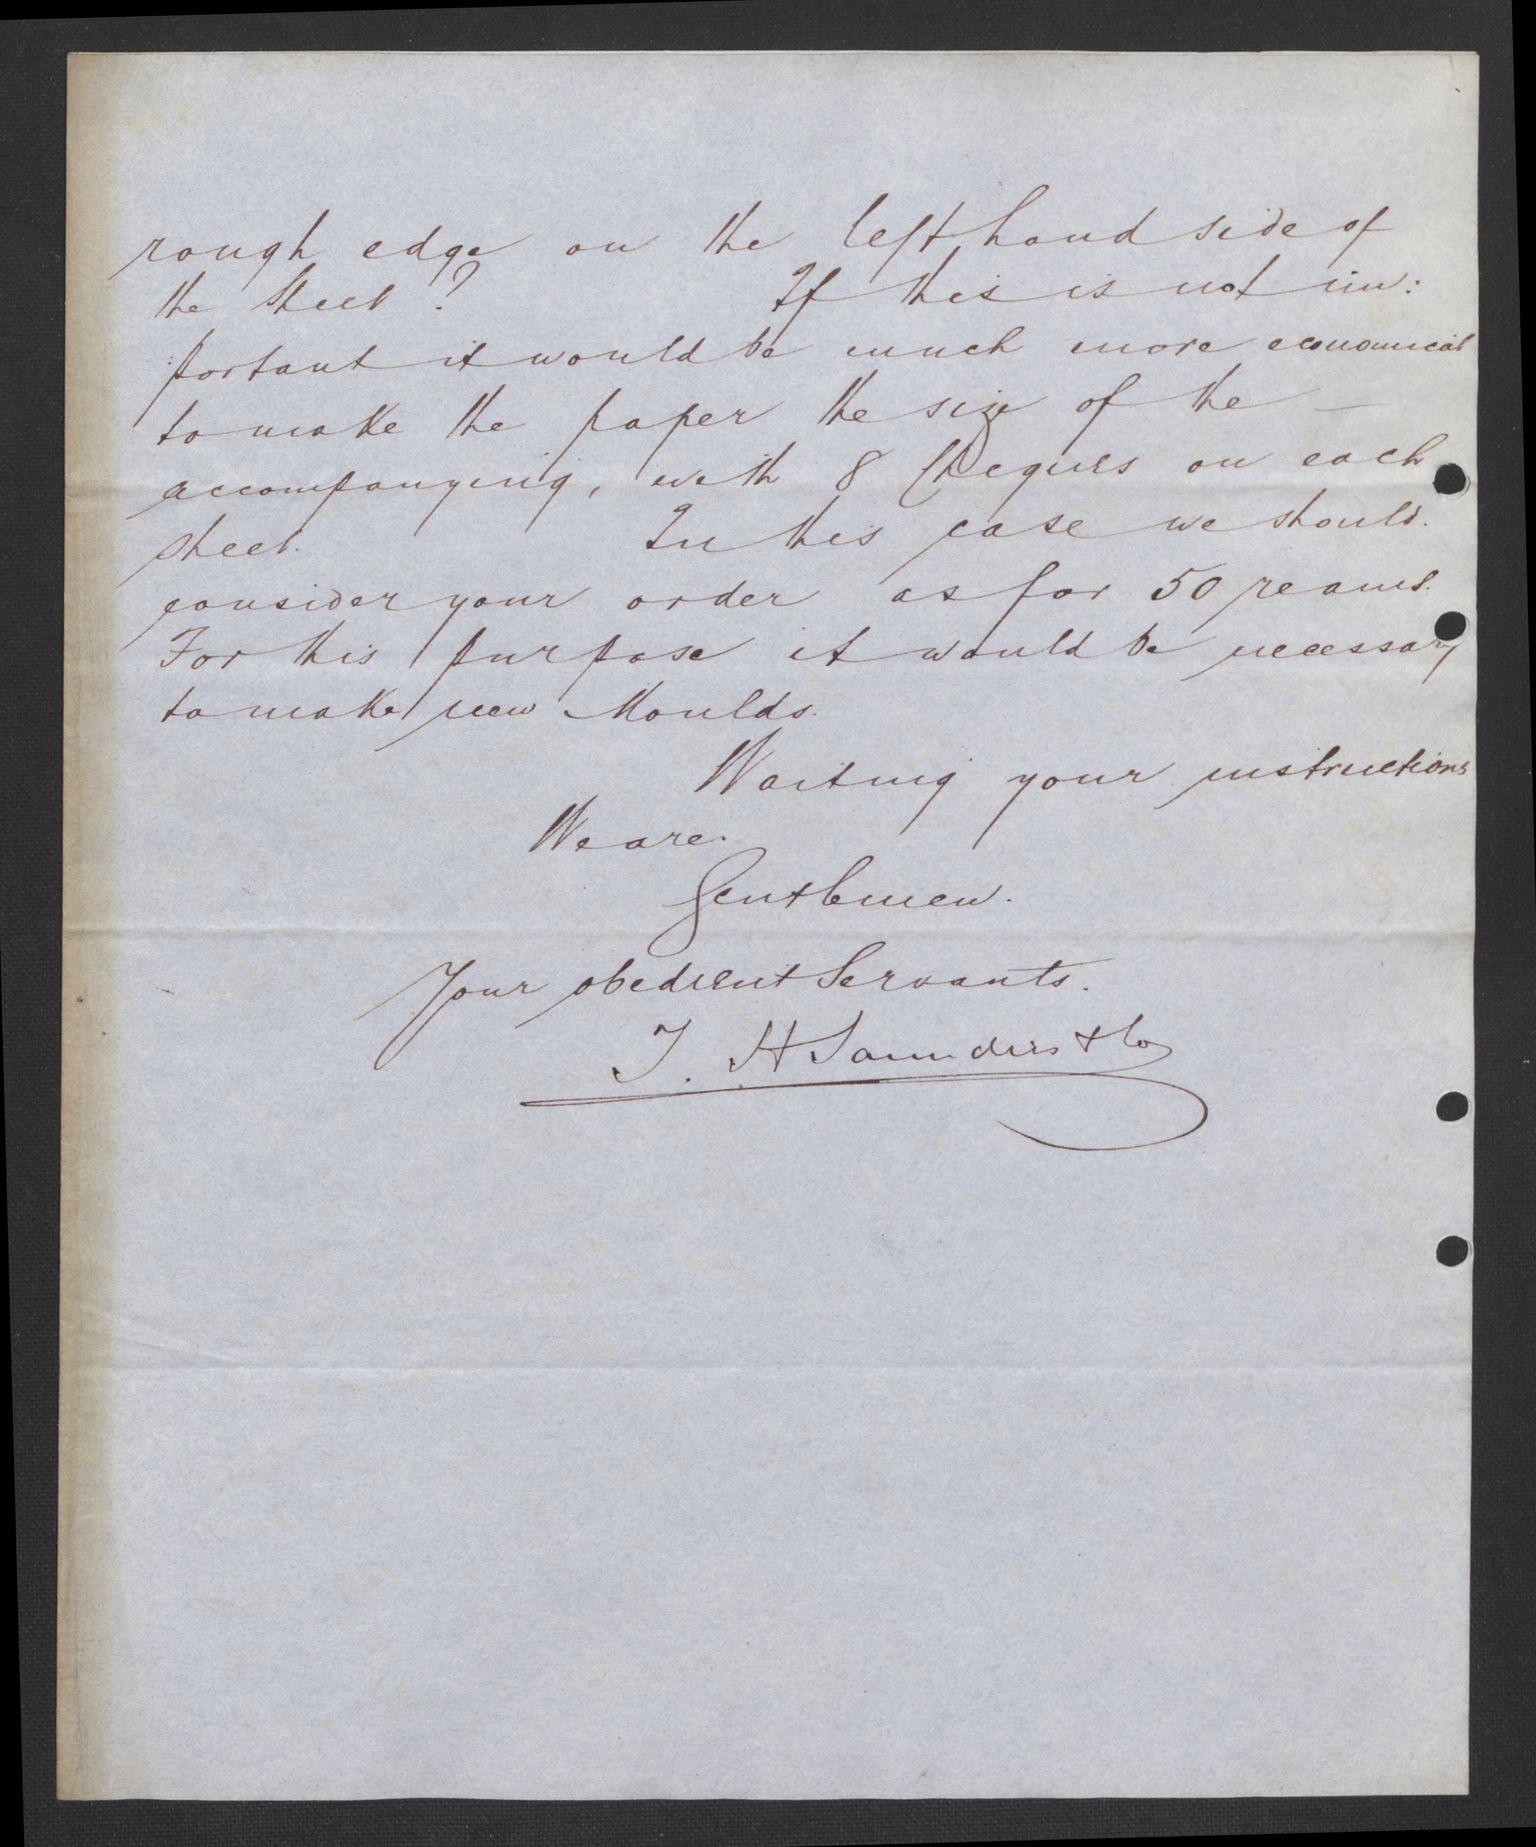 rough edge on the left hand side of
the Sheet? If this is not im:
:portant it would be much more economical
to make the paper the size of the —
accompanying, with 8 Cheques on each
sheet. In this case we should.
consider your order as for 50 reams.
For this purpose it would be necessary
to make new Moulds.
Waiting your instructions
We are.
Gentlemen.
Your obedient Servants.
T. H Saunders & Co